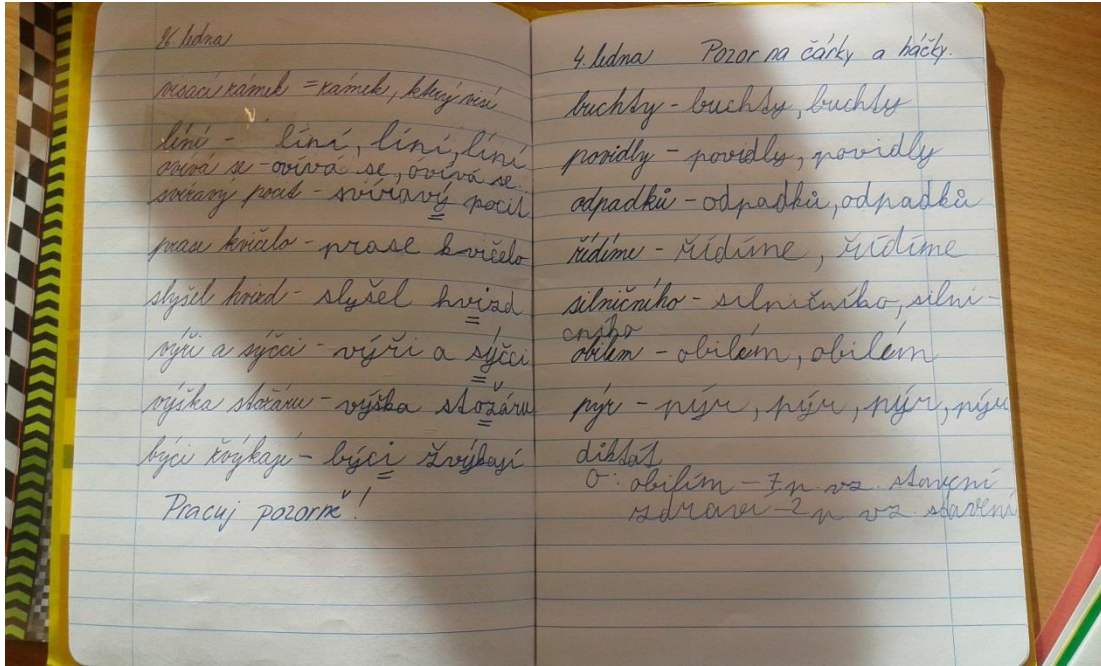 26. ledna
visací zámek = zámek, který visí
líní - líní, líní, líní
ovívá se - ovívá se, ovívá se
svíravý pocit - svíravý pocit
prase kvičelo - prase kvičelo
slyšel hvizd - slyšel hvizd
výři a sýčci - výři a sýčci
výška stožáru - výška stožáru
býci žvýkají - býci žvýkají
Pracuj pozorně!
4. ledna Pozor na čárky a háčky.
buchty - buchty, buchty
povidly - povidly, povidly
odpadků - odpadků, odpadků
řídíme - řídíme, řídíme
silničního - silničního, silni-
cního
obilím - obilím, obilím
pýr - pýr, pýr, pýr, pýr
diktát
O: obilím - 7. p. vz. stavení
zdraví - 2 p vz. stavení